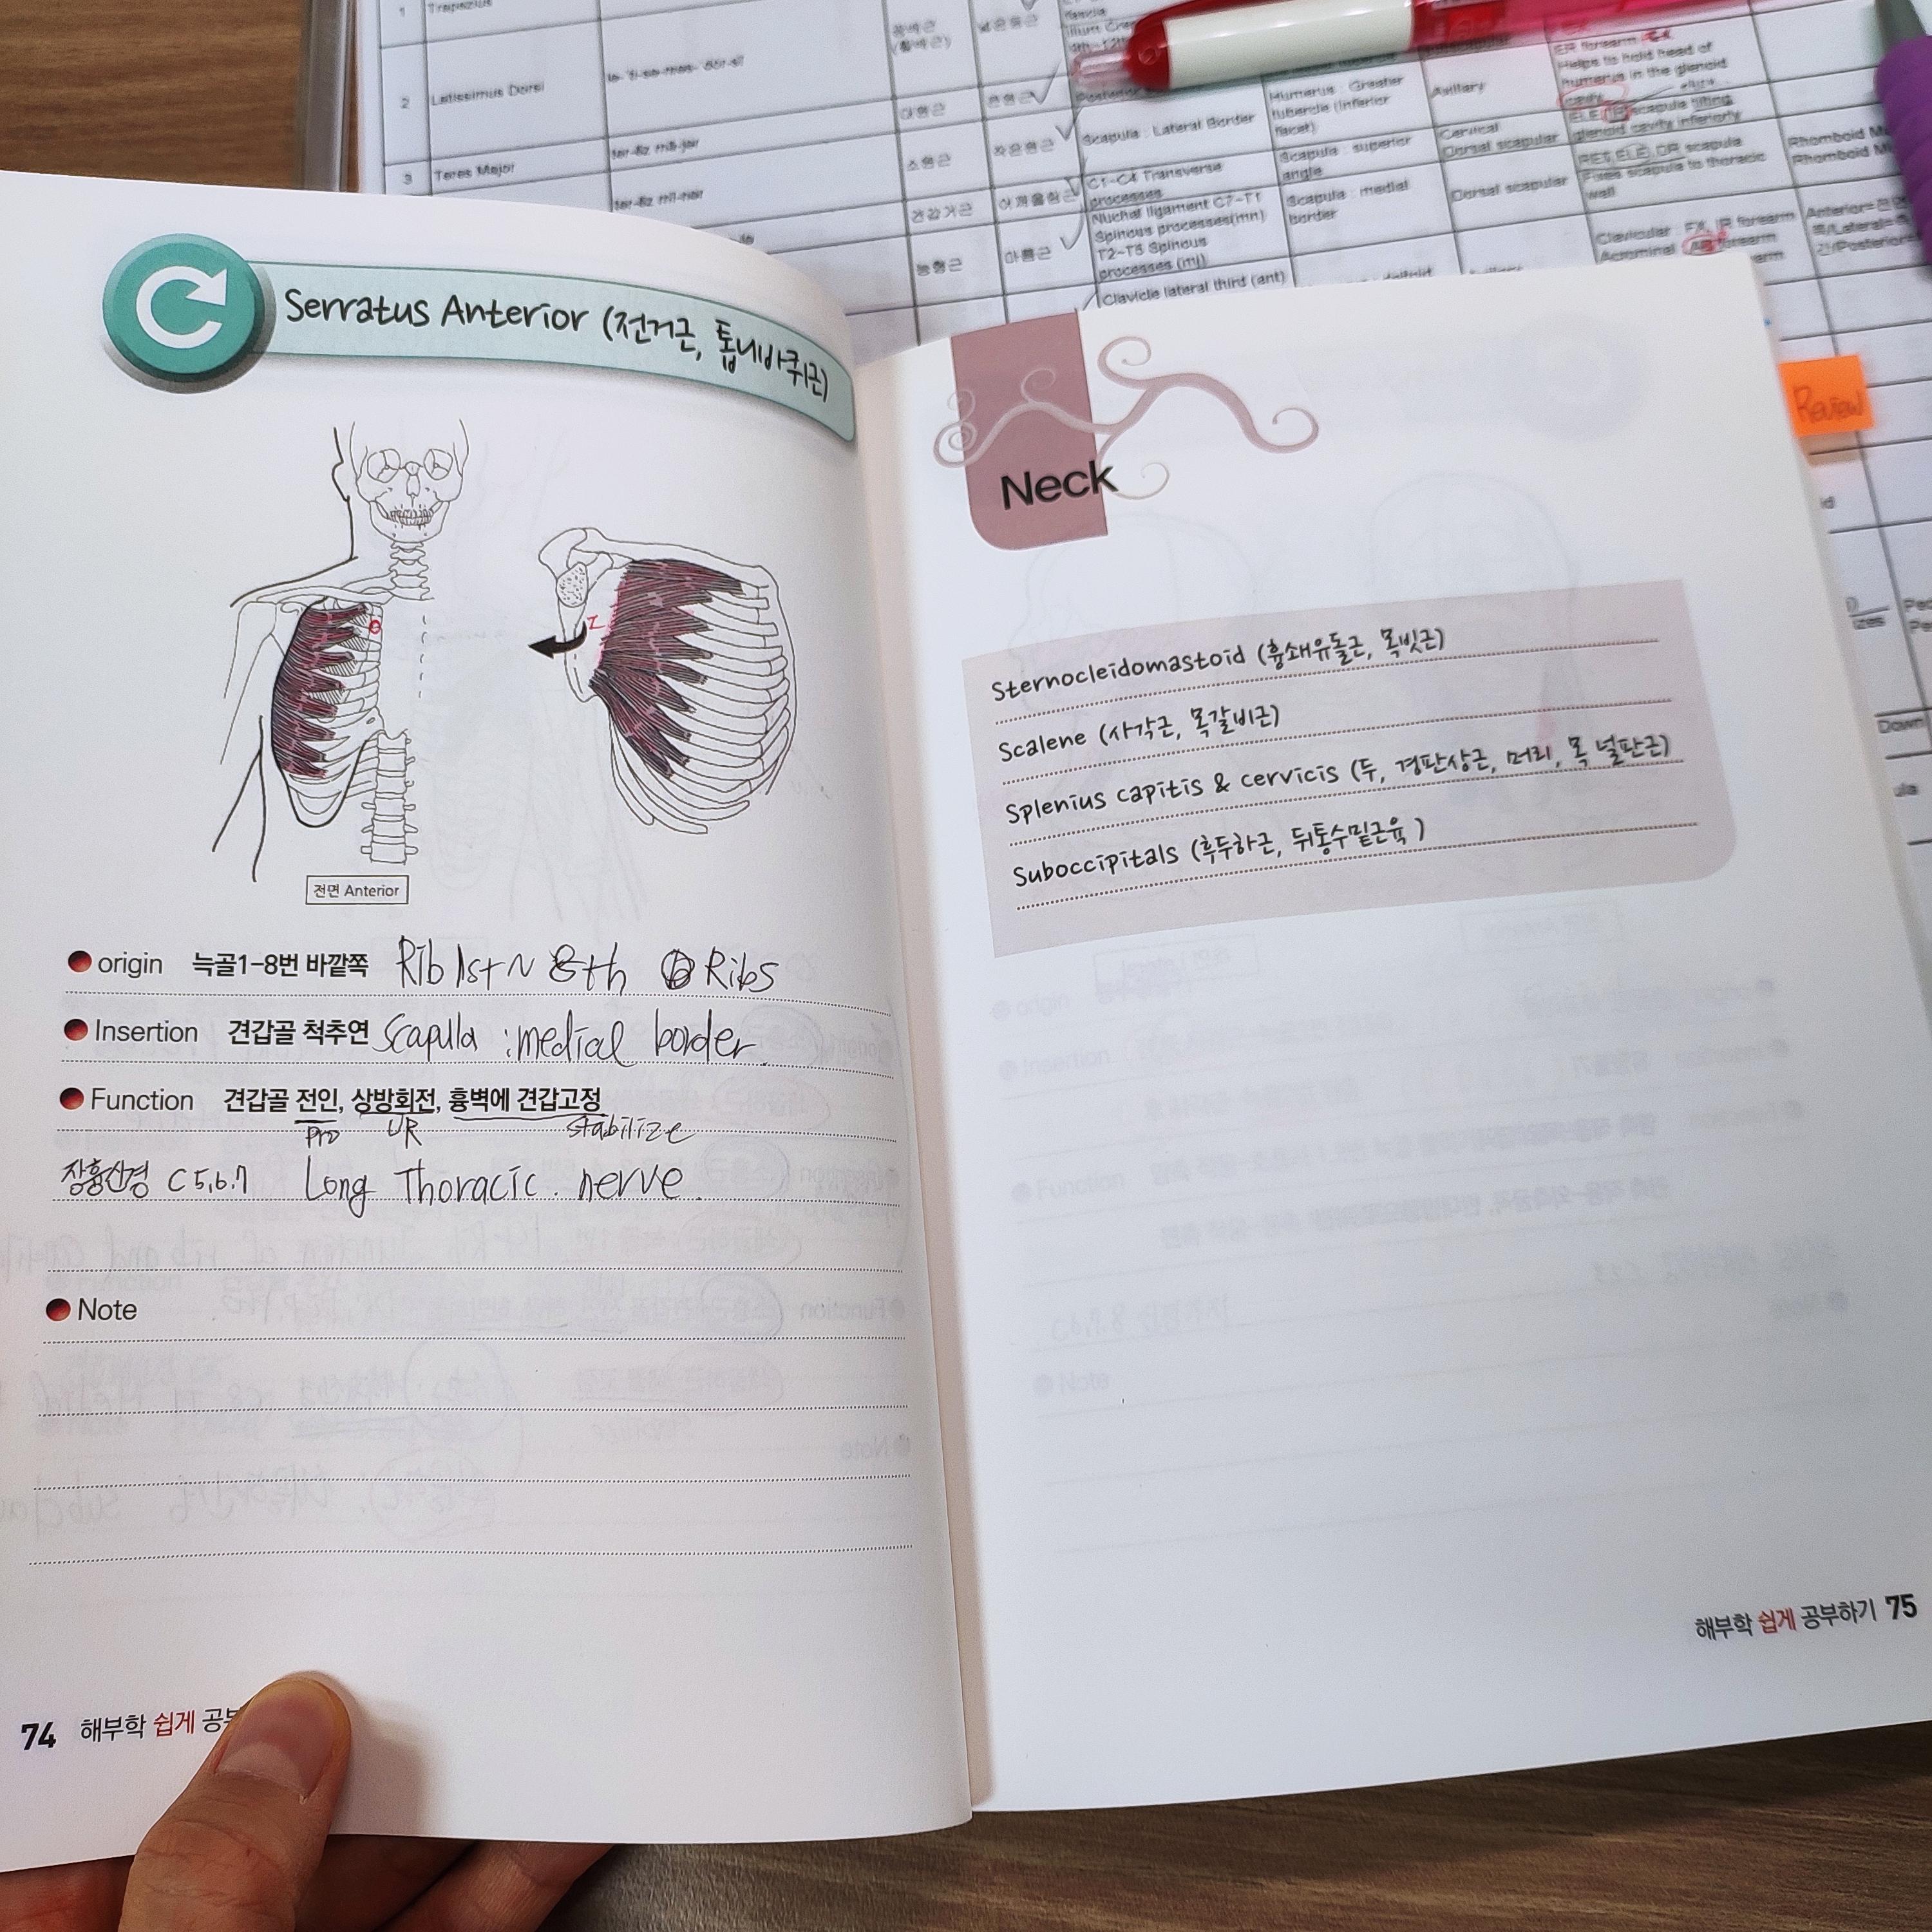 1 Trapezius
2 Latissimus Dorsi la-'ti-sə-məs-'dor-sī
3 Teres Major ter-ēz mā-jər
ter-ēz mī-nər
넓은등근
대형근 큰원근
소형근 작은원근
견갑거근 어깨올림근
능형근 마름근
Posterior
Scapula : Lateral Border
C1-C4 Transverse
processes
Nuchal ligament C7-T1
Spinous processes(mn)
T2-T5 Spinous
processes (mj)
Clavicle lateral third (ant)
Humerus : Greater
tubercle (Inferior
facet)
Scapula : superior
angle
Scapula : medial
border
Axillary
Cervical
Dorsal scapular
Dorsal scapular
ER forearm
Helps to hold head of
humerus in the glenoid
cavity
ELE, scapula tilting
glenoid cavity inferiorly
RET, ELE, DR scapula
Fixes scapula to thoracic
wall
Clavicular : FX, IR forearm
Acrominal : AB forearm
Rhomboid
Rhomboid
Review
Down
Serratus Anterior (전거근, 톱니바퀴근)
O
I
전면 Anterior
origin 늑골1-8번 바깥쪽 Rib 1st ~ 8th Ribs
Insertion 견갑골 척추연 Scapula : medial border.
Function 견갑골 전인, 상방회전, 흉벽에 견갑고정
Pro UR stabilize
장흉신경 C 5,6,7 Long Thoracic. nerve.
Note
74 해부학 쉽게 공부
Neck
Sternocleidomastoid (흉쇄유돌근, 목빗근)
Scalene (사각근, 목갈비근)
Splenius capitis & cervicis (두, 경판상근, 머리, 목 널판근)
Suboccipitals (후두하근, 뒤통수밑근육 )
해부학 쉽게 공부하기 75